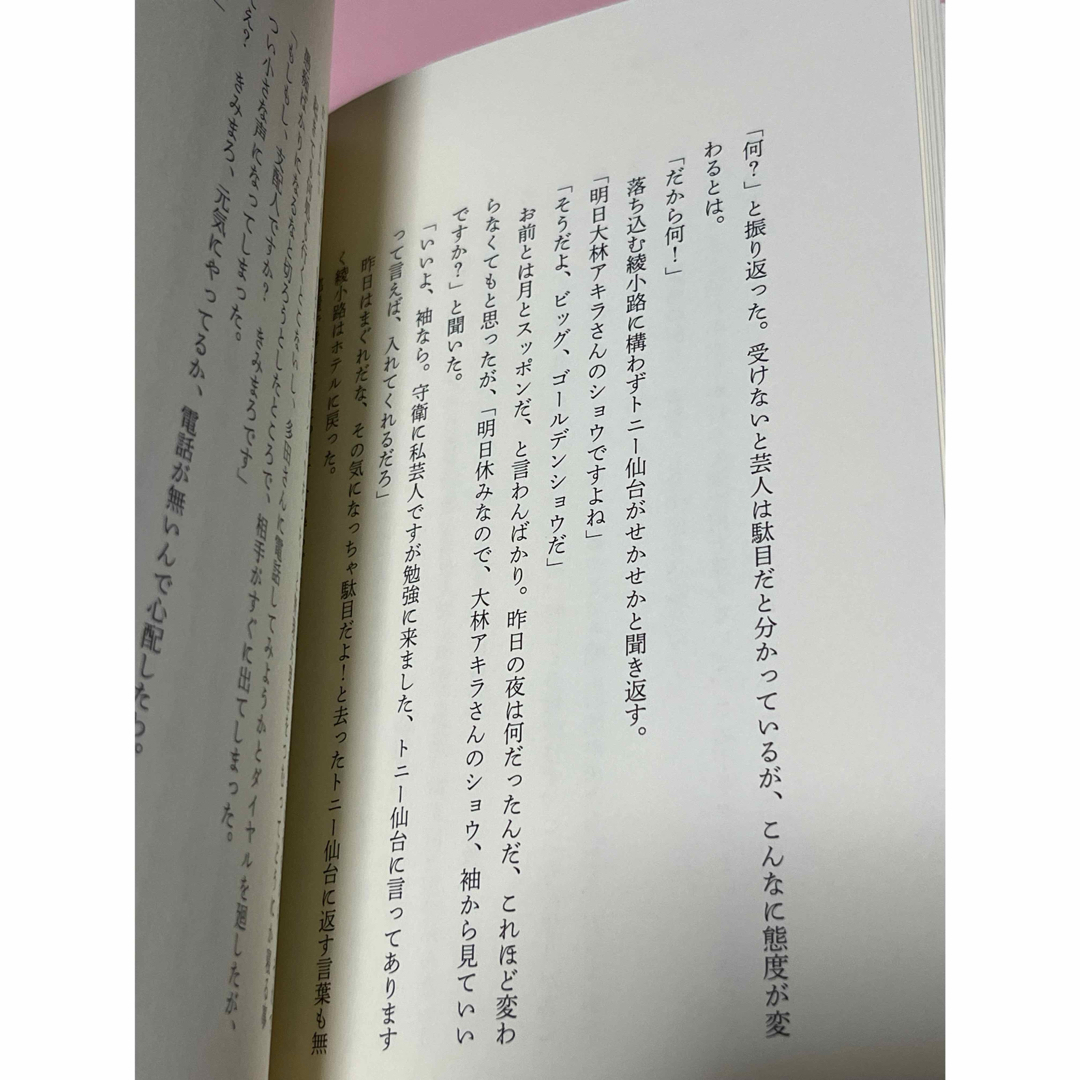 「何？」と振り返った。受けないと芸人は駄目だと分かっているが、こんなに態度が変
わるとは。
「だから何！」
落ち込む綾小路に構わずトニー仙台がせかせかと聞き返す。
「明日大林アキラさんのショウですよね」
「そうだよ、ビッグ、ゴールデンショウだ」
お前とは月とスッポンだ、と言わんばかり。昨日の夜は何だったんだ、これほど変わ
らなくてもと思ったが、「明日休みなので、大林アキラさんのショウ、袖から見ていい
ですか？」と聞いた。
「いいよ、袖なら。守衛に私芸人ですが勉強に来ました、トニー仙台に言ってあります
って言えば、入れてくれるだろ」
昨日はまぐれだな、その気になっちゃ駄目だよ！と去ったトニー仙台に返す言葉も無
く綾小路はホテルに戻った。
になるなと切ろうとしたところで、
多田さんに電話してみようかとダイヤルを廻したが、
「もしもし、支配人ですか？　きみまろです」
相手がすぐに出てしまった。
つい小さな声になってしまった。
え？　きみまろ、元気にやってるか、電話が無いんで心配したわ。